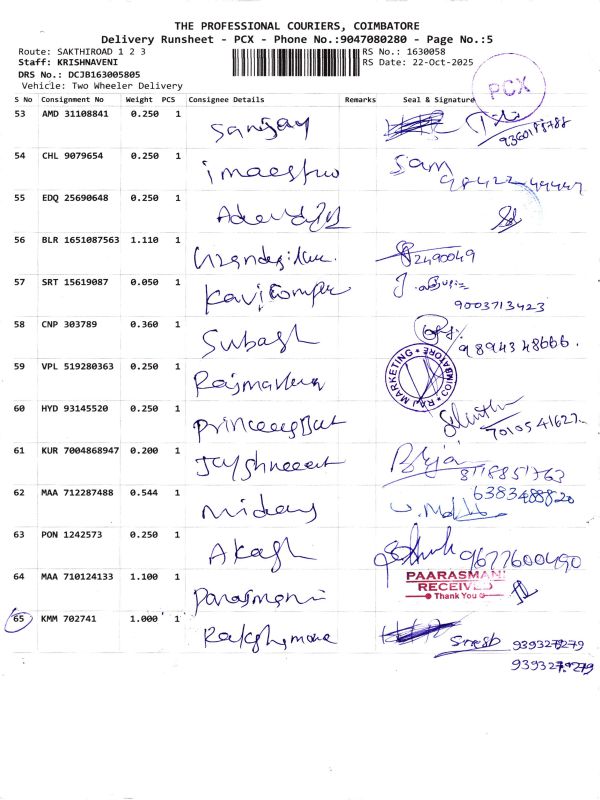 THE PROFESSIONAL COURIERS, COIMBATORE
Delivery Runsheet - PCX - Phone No.:9047080280 - Page No.:5
Route: SAKTHIROAD 1 2 3 RS No.: 1630058
Staff: KRISHNAVENI RS Date: 22-Oct-2025
DRS No.: DCJB163005805
Vehicle: Two Wheeler Delivery
PCX
S No Consignment No Weight PCS Consignee Details Remarks Seal & Signature
53 AMD 31108841 0.250 1 Sanjay
9360188788
54 CHL 9079654 0.250 1 imaestro Sam
98422-44447
55 EDQ 25690648 0.250 1
56 BLR 1651087563 1.110 1
2490049
57 SRT 15619087 0.050 1
9003713423
58 CNP 303789 0.360 1 Subash
9894348666.
59 VPL 519280363 0.250 1
RAJ MARKETING COIMBATORE
60 HYD 93145520 0.250 1
7010541627
61 KUR 7004868947 0.200 1
8718851763
62 MAA 712287488 0.544 1 6383488820
63 PON 1242573 0.250 1 Akash
9677600490
64 MAA 710124133 1.100 1 Parasmani PAARASMANI
RECEIVED
Thank You
65 KMM 702741 1.000 1 9393279279
9393279279